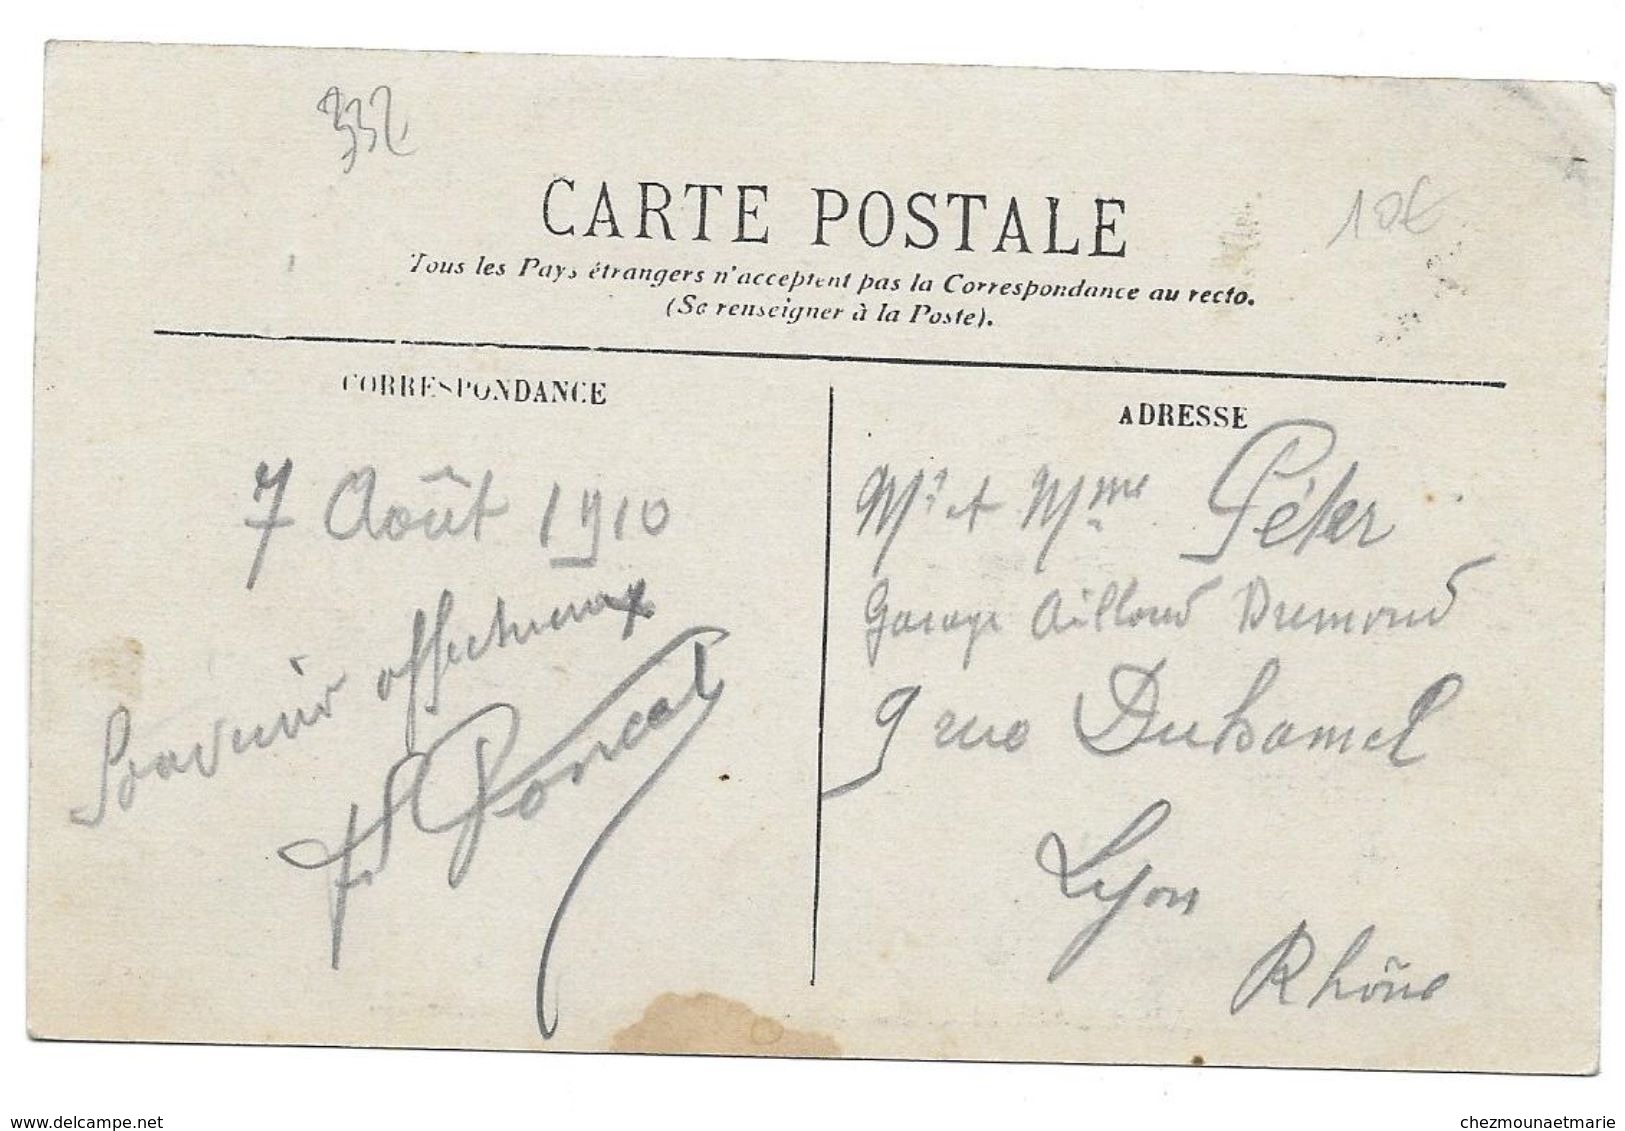 332
CARTE POSTALE
10€
Tous les Pays étrangers n'acceptent pas la Correspondance au recto.
(Se renseigner à la Poste).
CORRESPONDANCE
7 Août 1910
Souvenir affectueux
ADRESSE
Mr et Mme Péter
Garage Ailloud Dumond
9 rue Duhamel
Lyon
Rhône
www.delcampe.net
chezmounaetmarie